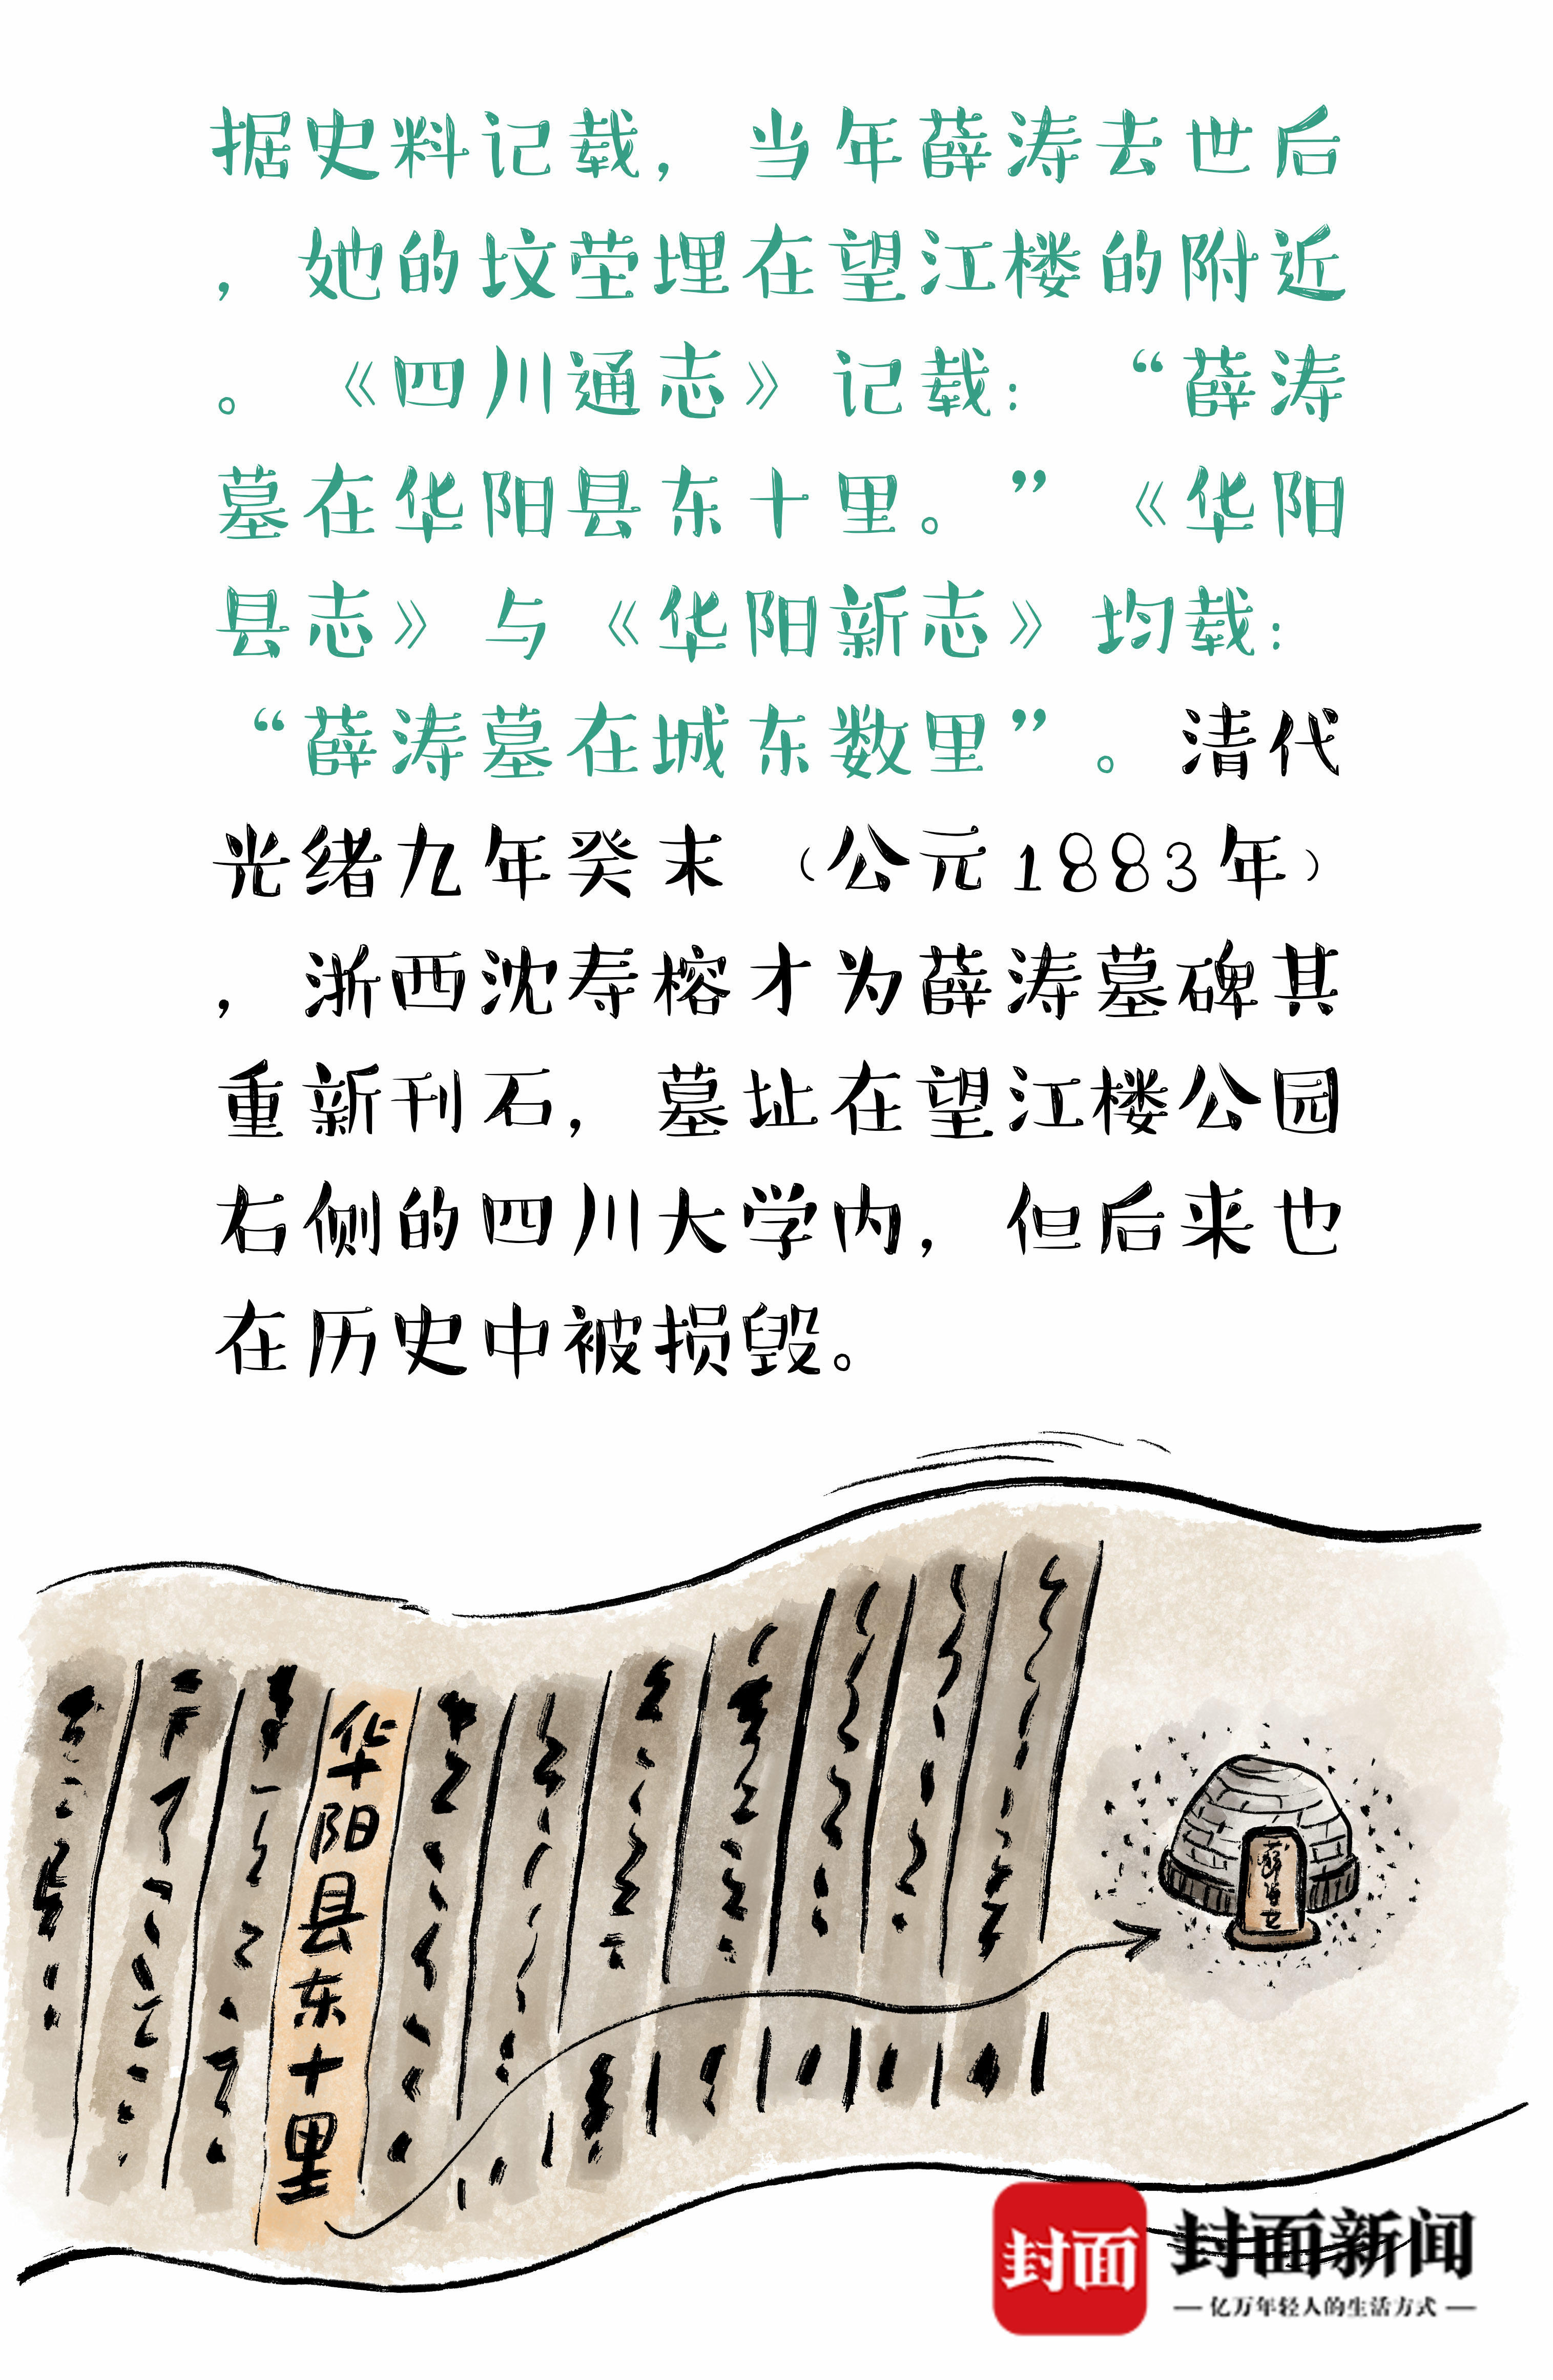 据史料记载，当年薛涛去世后
，她的坟茔埋在望江楼的附近
。《四川通志》记载：“薛涛
墓在华阳县东十里。”《华阳
县志》与《华阳新志》均载：
“薛涛墓在城东数里”。清代
光绪九年癸末（公元1883年）
，浙西沈寿榕才为薛涛墓碑其
重新刊石，墓址在望江楼公园
右侧的四川大学内，但后来也
在历史中被损毁。
华阳县东十里
封面
封面新闻
亿万年轻人的生活方式